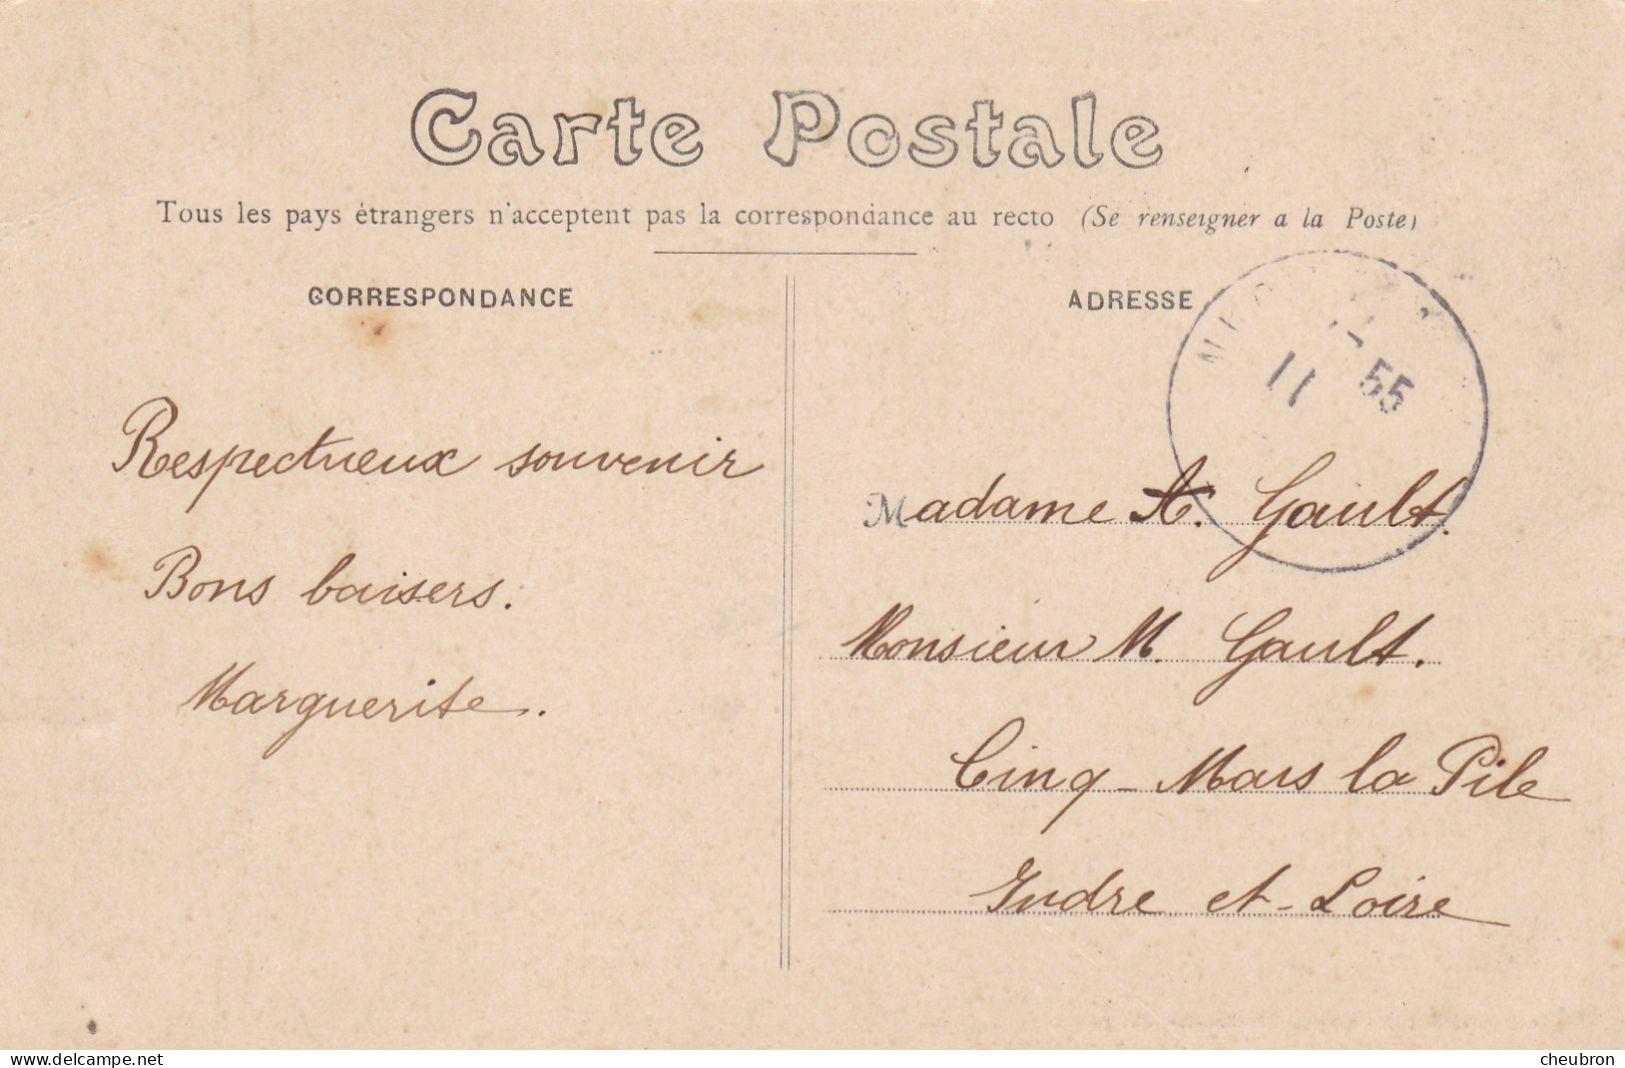 Carte Postale
Tous les pays étrangers n'acceptent pas la correspondance au recto (Se renseigner a la Poste)
CORRESPONDANCE
ADRESSE
11 55
Respectueux souvenir
Bons baisers.
Marguerite.
Madame A. Gault.
Monsieur M. Gault.
Cinq-Mars la Pile
Indre et-Loire
delcampe.net
cheubron